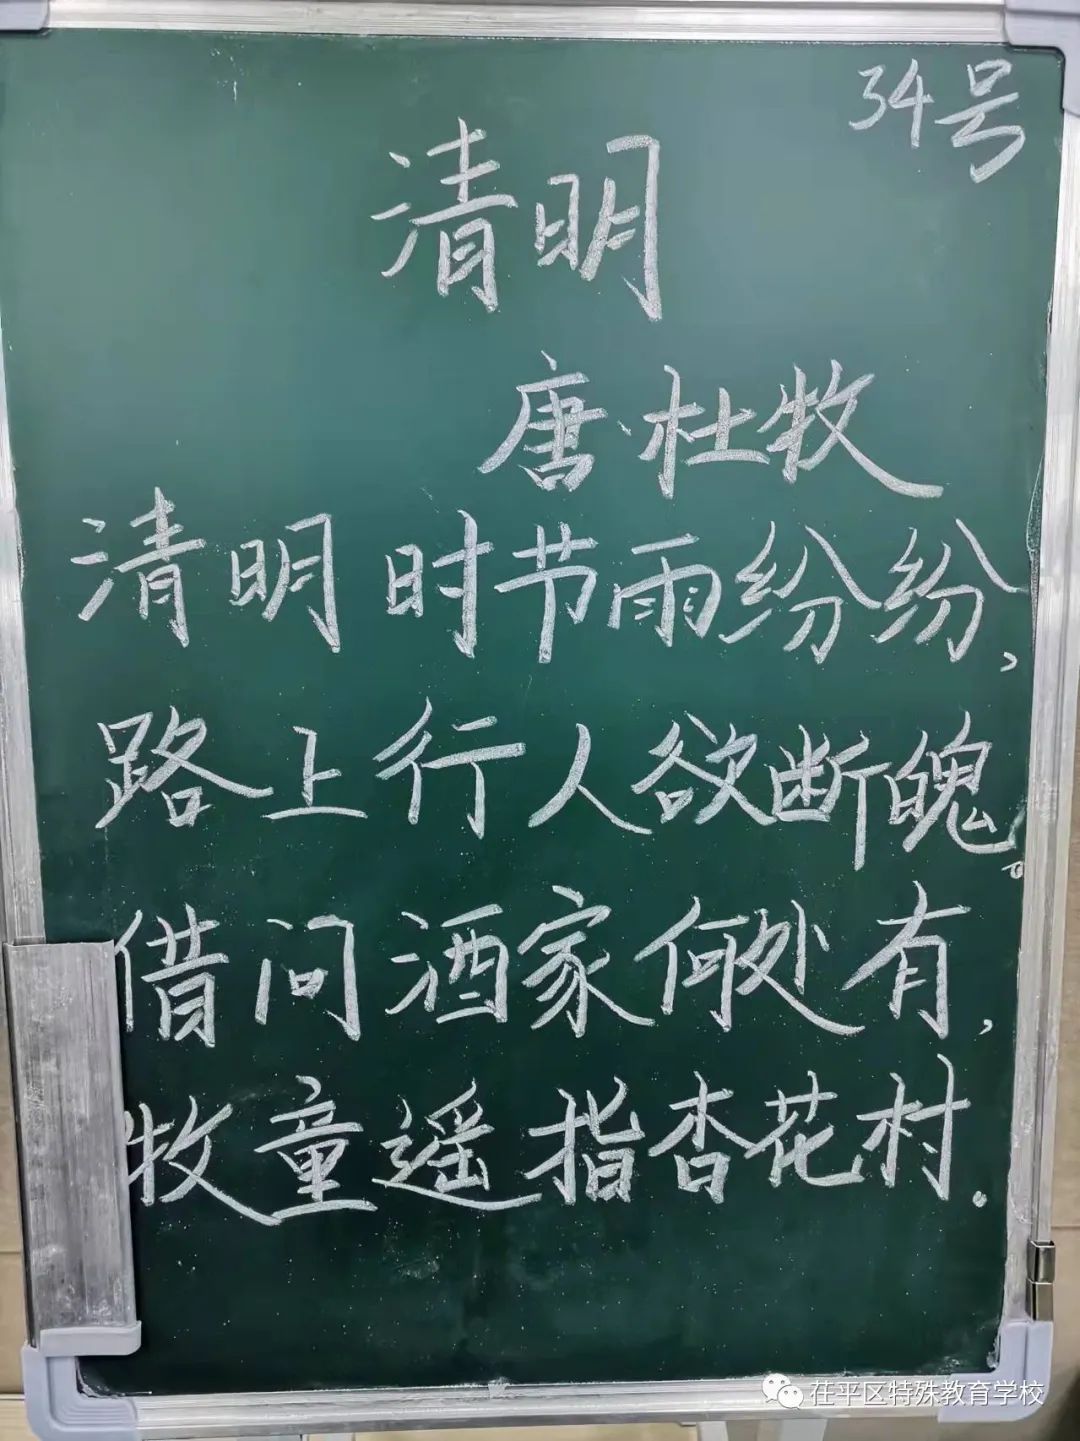 34号
清明
唐·杜牧
清明时节雨纷纷,
路上行人欲断魂。
借问酒家何处有,
牧童遥指杏花村.
茌平区特殊教育学校